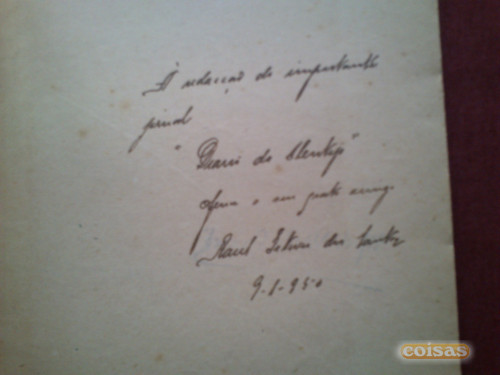 À redacção do importante
jornal
"Diario do Alentejo"
o seu grato amigo
Raul Esteves dos Santos
9-1-950
coisas